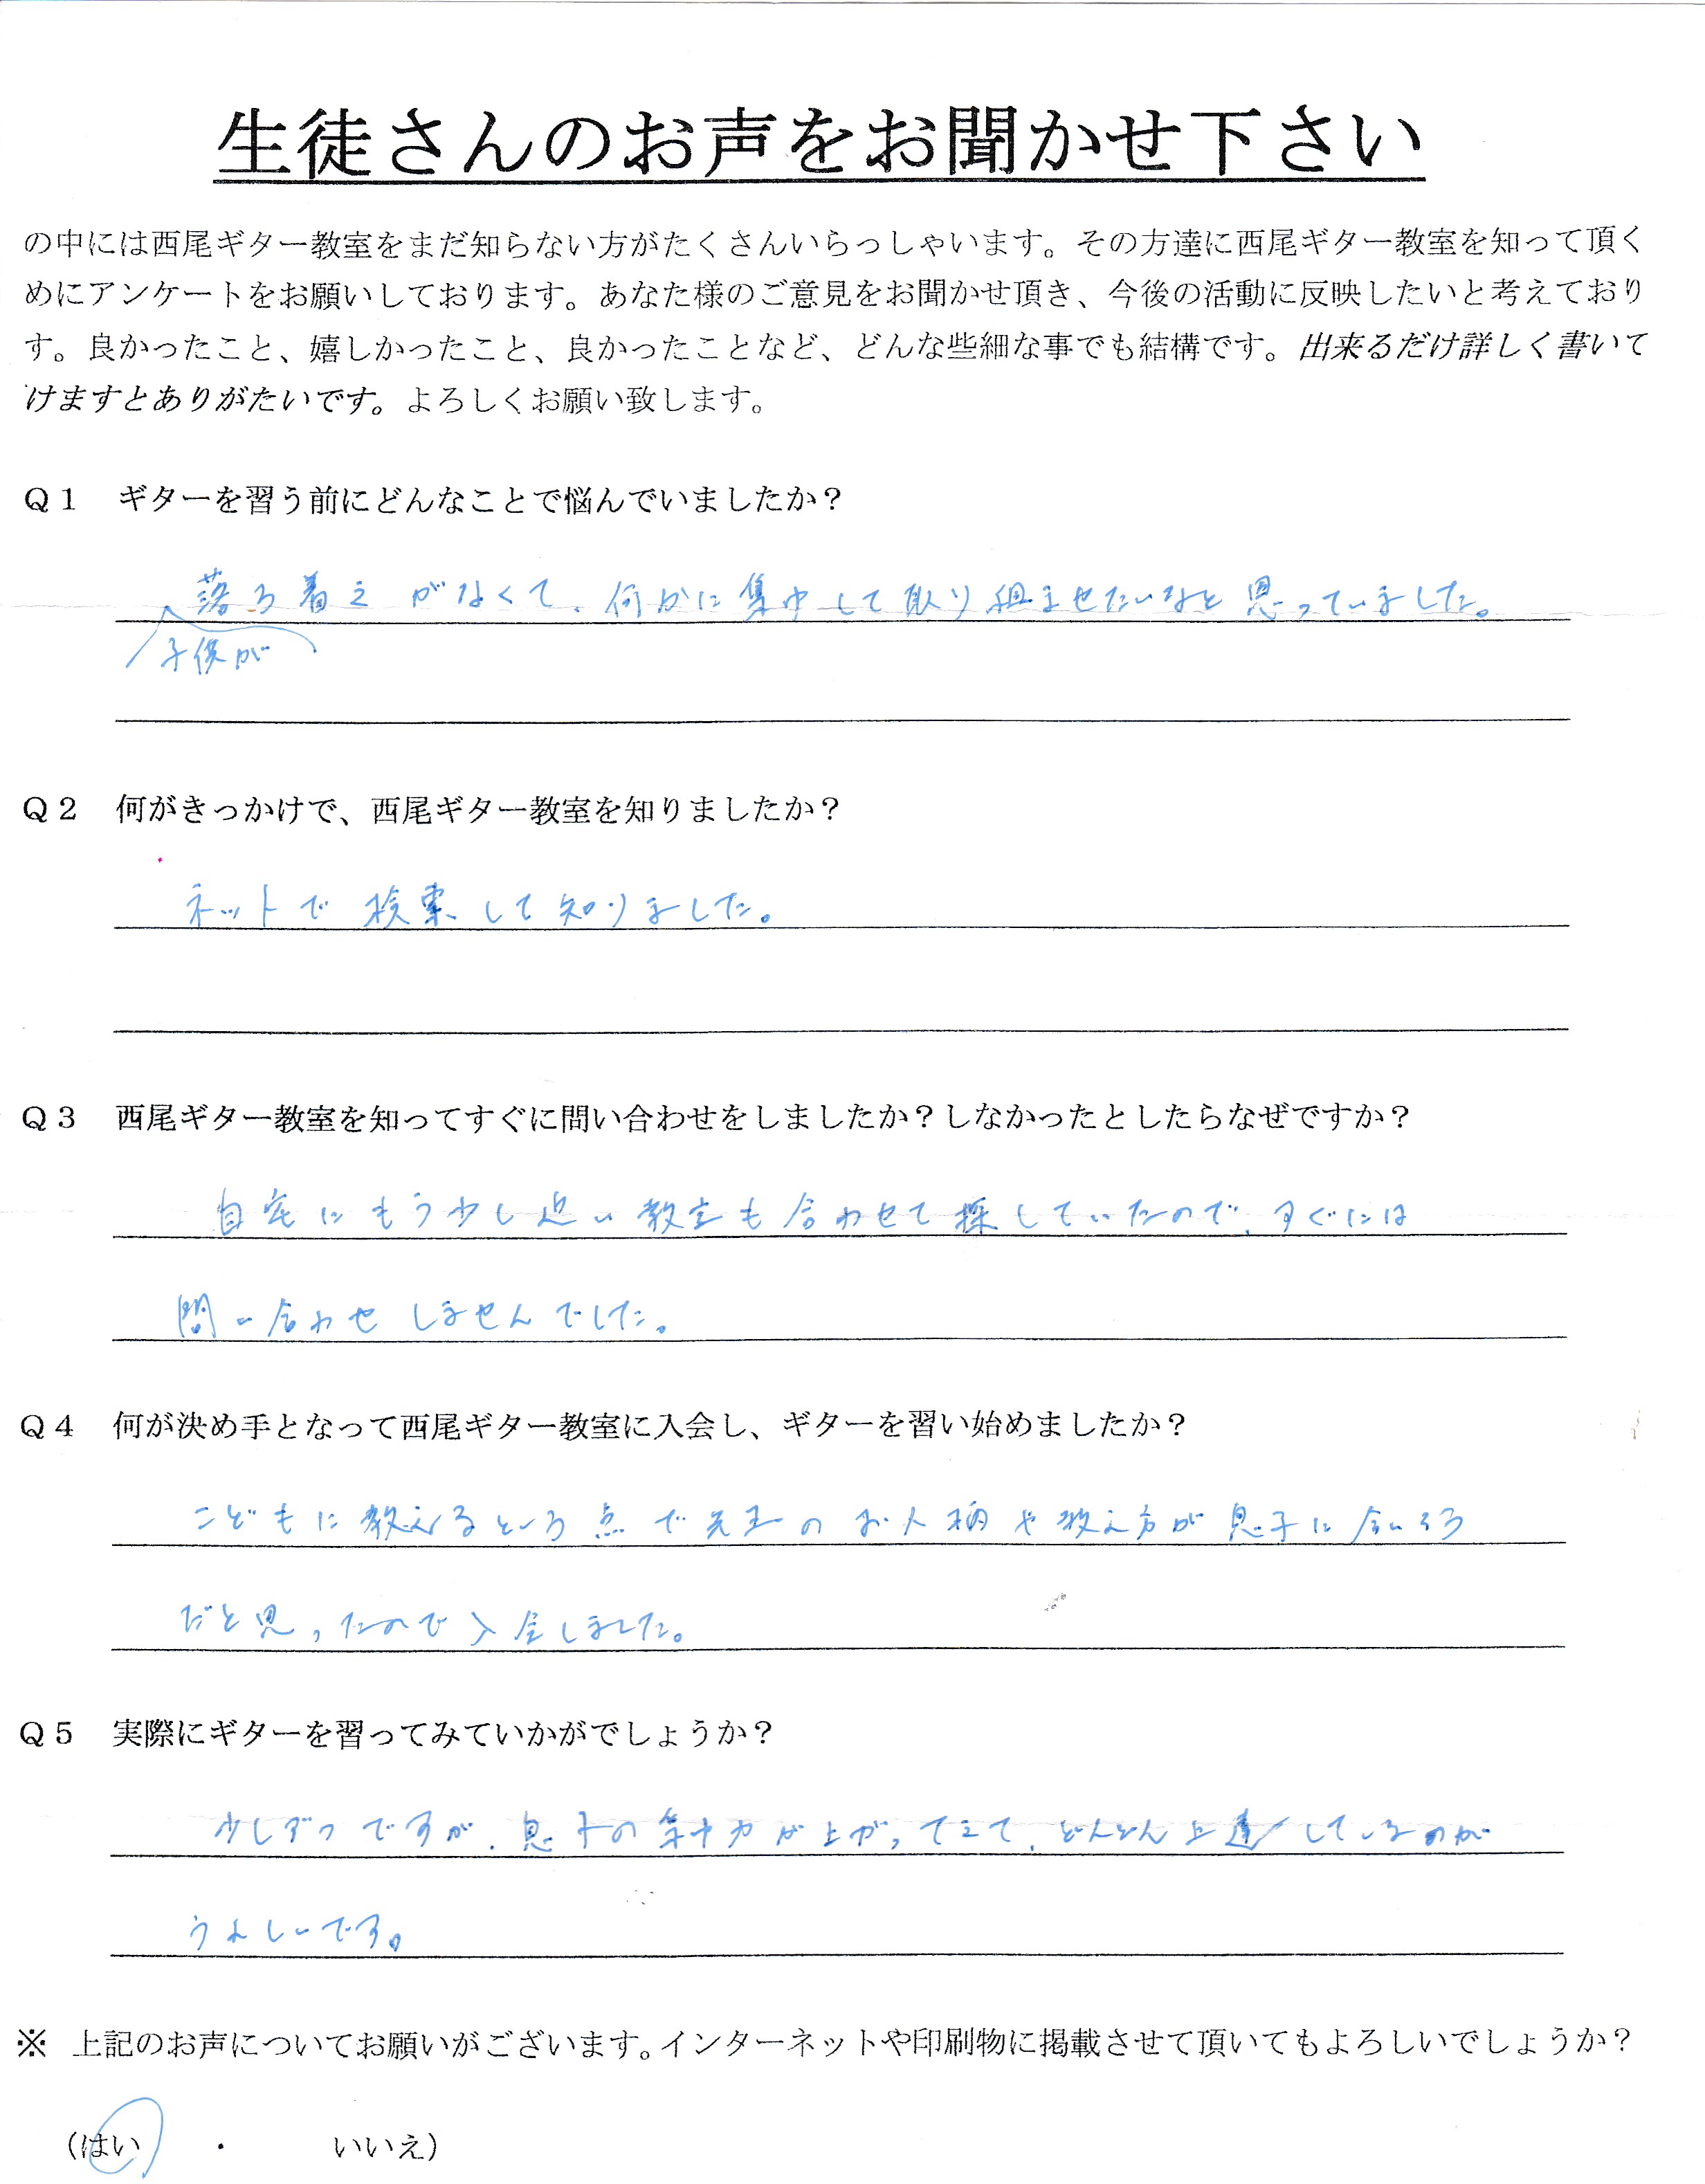 生徒さんのお声をお聞かせ下さい
の中には西尾ギター教室をまだ知らない方がたくさんいらっしゃいます。その方達に西尾ギター教室を知って頂く
めにアンケートをお願いしております。あなた様のご意見をお聞かせ頂き、今後の活動に反映したいと考えており
す。良かったこと、嬉しかったこと、良かったことなど、どんな些細な事でも結構です。出来るだけ詳しく書いて
けますとありがたいです。よろしくお願い致します。
Q1 ギターを習う前にどんなことで悩んでいましたか?
落ち着きがなくて、何かに集中して取り組ませたいなと思っていました。
子供が
Q2 何がきっかけで、西尾ギター教室を知りましたか?
ネットで検索して知りました。
Q3 西尾ギター教室を知ってすぐに問い合わせをしましたか?しなかったとしたらなぜですか?
自宅にもう少し近い教室も合わせて探していたので、すぐには
問い合わせしませんでした。
Q4 何が決め手となって西尾ギター教室に入会し、ギターを習い始めましたか?
こどもに教えるという点で先生のお人柄や教え方が息子に合いそう
だと思ったので入会しました。
Q5 実際にギターを習ってみていかがでしょうか?
少しずつですが、息子の集中力が上がってきて、どんどん上達しているのが
うれしいです。
※ 上記のお声についてお願いがございます。インターネットや印刷物に掲載させて頂いてもよろしいでしょうか?
(はい ・ いいえ)